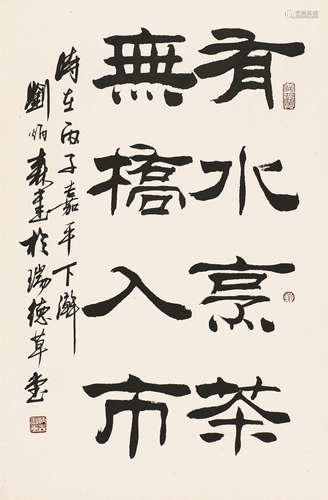 有水烹茶
無橋入市
時在丙子嘉平下澣
劉炳森書於瑞德草堂